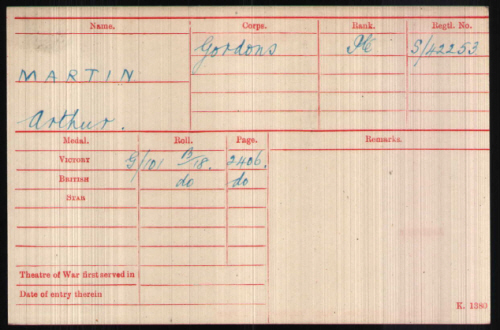 Name. Corps. Rank. Regtl. No.
Gordons Pte S/42253
MARTIN
Arthur.
Medal. Roll. Page. Remarks.
VICTORY G/101 B/18. 2406.
BRITISH do do
STAR
Theatre of War first served in
Date of entry therein
K. 1380